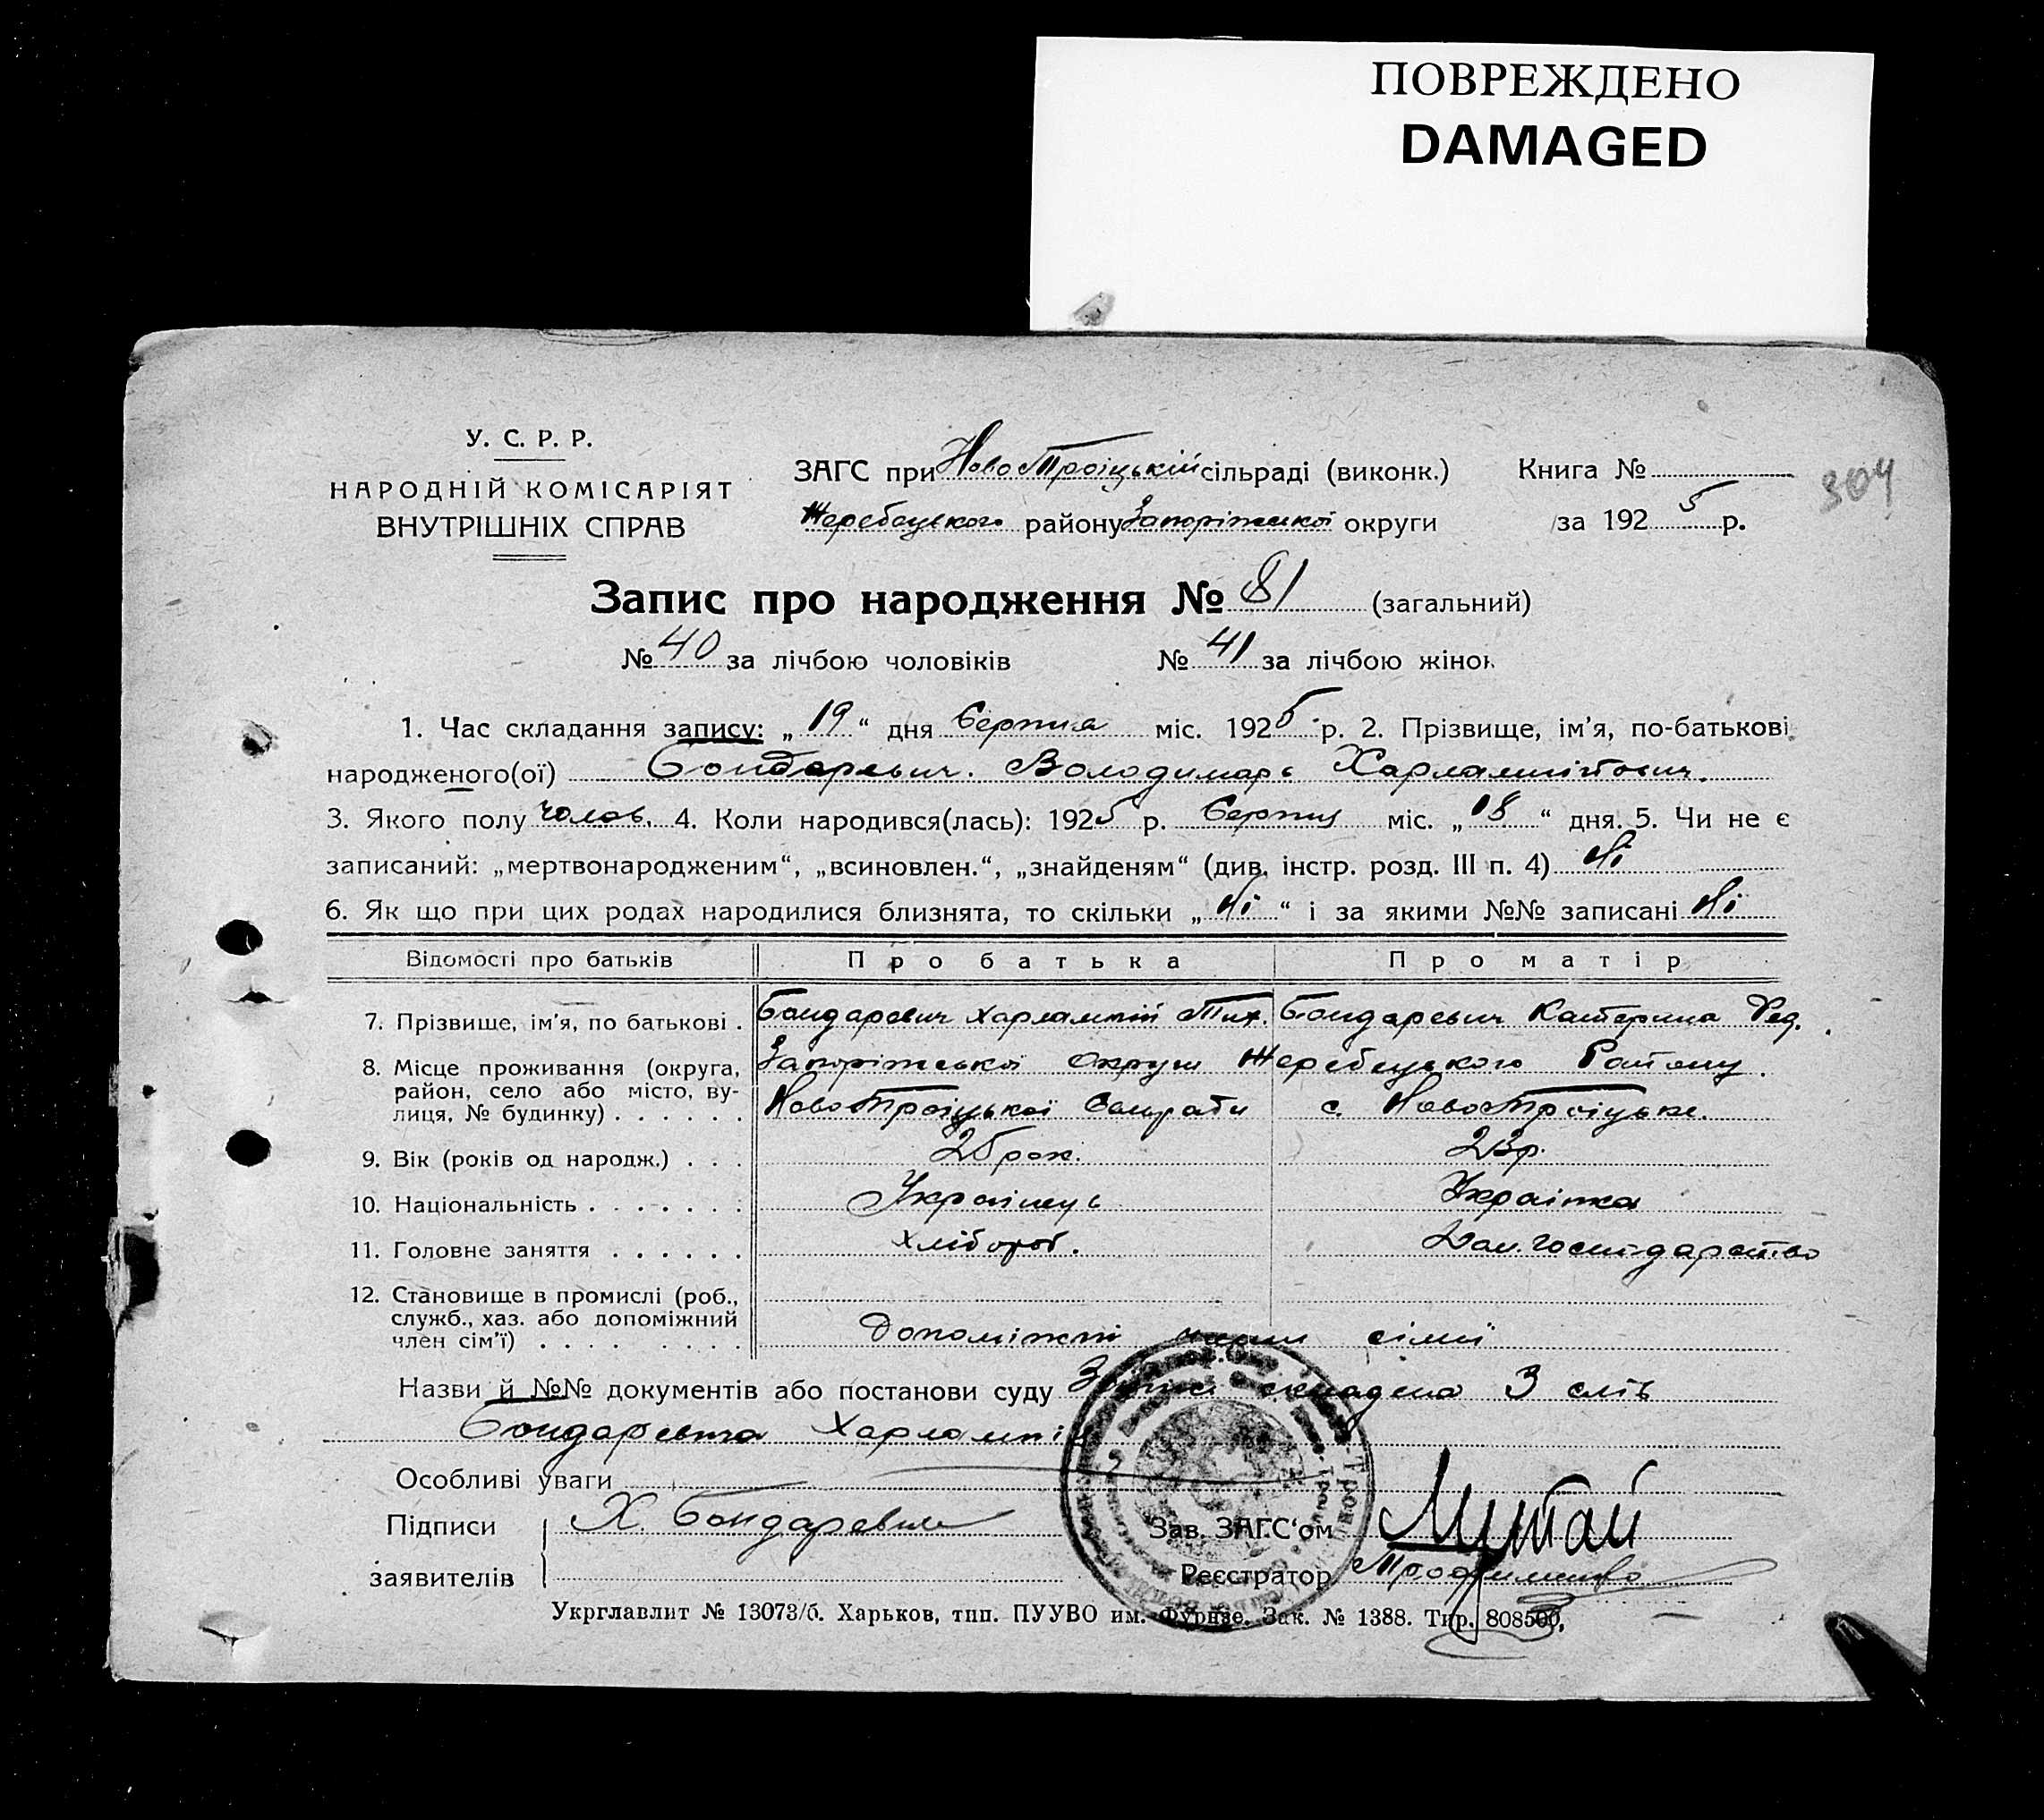 ПОВРЕЖДЕНО
DAMAGED
У. С. Р. Р.
НАРОДНІЙ КОМІСАРІЯТ
ВНУТРІШНІХ СПРАВ
ЗАГС при НовоТроіцькій сільраді (виконк.)
Жеребецького району Запоріжської округи
Книга №
за 1925 р.
304
Запис про народження № 81 (загальний)
№ 40 за лічбою чоловіків № 41 за лічбою жінок
1. Час складання запису: „ 19 “ дня Серпня міс. 1925 р. 2. Прізвище, ім'я, по-батькові
народженого(ої) Бондаревич. Володимарь Харлампійович.
3. Якого полу чолов. 4. Коли народився(лась): 1925 р. Серпня міс. „ 18 “ дня. 5. Чи не є
записаний: „мертвонародженим“, „всиновлен.“, „знайденям“ (див. інстр. розд. III п. 4) Ні
6. Як що при цих родах народилися близнята, то скільки „ Ні “ і за якими №№ записані Ні
Відомості про батьків Про батька Про матір
7. Прізвище, ім'я, по батькові . Бондаревич Харлампій Тих. Бондаревич Катерина Фед.
8. Місце проживання (округа, Запоріжської округи Жеребецького Району.
район, село або місто, ву-
лиця, № будинку) . . . . . . НовоТроіцької Сільради с. НовоТроіцьке.
9. Вік (років од народж.) . . . 25 рок. 23 р.
10. Національність . . . . . . . Українець Украінка
11. Головне заняття . . . . . . Хлібороб. Дом. господарство
12. Становище в промислі (роб.,
служб., хаз. або допоміжний
член сім'ї) . . . . . . . . Допоміжні члени сімї
Назви й №№ документів або постанови суду складено З слів
Бондаревича Харлампія
Особливі уваги
Підписи Х. Бондаревич Зав. ЗАГС'ом
заявителів Реєстратор
Укрглавлит № 13073/б. Харьков, тип. ПУУВО им. Фрунзе. Зак. № 1388. Тир. 808500,